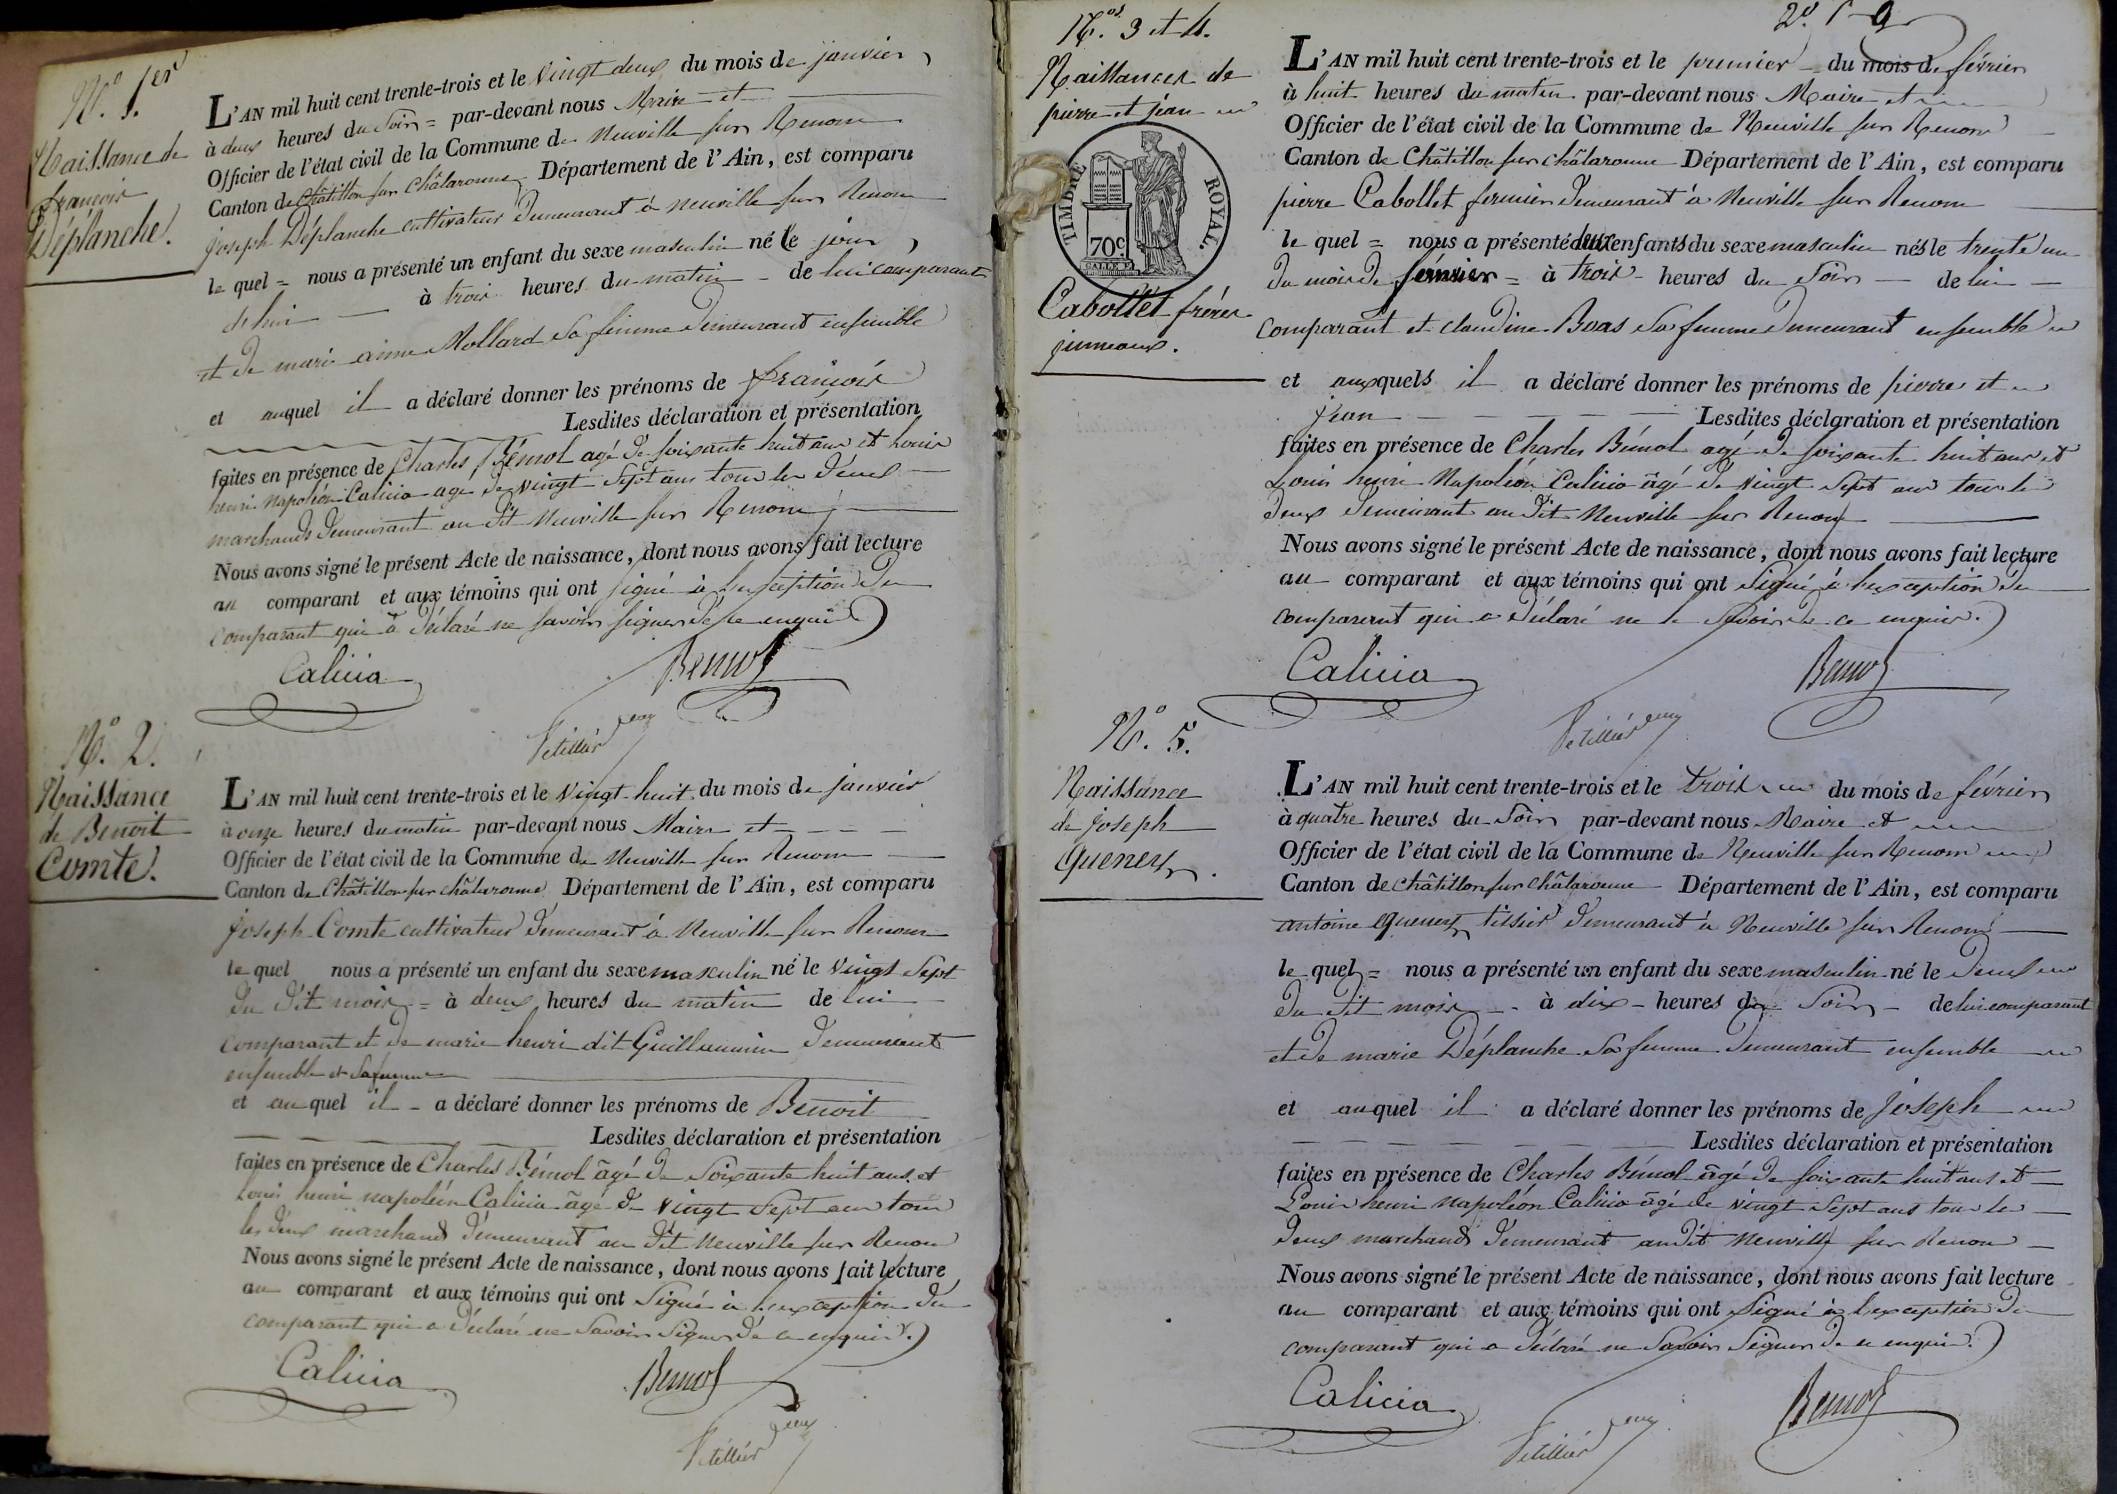 N.° 1.er
Naissance de
françois
Déplanche.
L'AN mil huit cent trente-trois et le vingt deux du mois de janvier
à deux heures du Soir = par-devant nous Maire et
Officier de l'état civil de la Commune de Neuville sur Renom
Canton de Châtillon sur Châlaronne Département de l'Ain, est comparu
joseph Déplanche cultivateur demeurant à neuville sur Renom
le quel = nous a présenté un enfant du sexe masculin né le jour
d'hui à trois heures du matin de lui comparant
et de marie aimée Mollard Sa femme demeurant ensemble
et auquel il a déclaré donner les prénoms de françois
Lesdites déclaration et présentation
faites en présence de Charles Bémol agé de soixante huit ans et Louis
henri napoléon Calicia agé de vingt Sept ans tous les deux
marchands demeurant au dit Neuville sur Renom
Nous avons signé le présent Acte de naissance, dont nous avons fait lecture
au comparant et aux témoins qui ont signé à l'exception du
comparant qui a déclaré ne savoir signer de ce enquis
Calicia Bemol
N.° 2.
Naissance
de Benoit
Comte.
L'AN mil huit cent trente-trois et le vingt-huit du mois de janvier
à onze heures du matin par-devant nous Maire et
Officier de l'état civil de la Commune de Neuville sur Renom
Canton de Châtillon sur châlaronne Département de l'Ain, est comparu
joseph Comte cultivateur demeurant à Neuville sur Renom
le quel nous a présenté un enfant du sexe masculin né le vingt Sept
du dit mois = à deux heures du matin de lui
comparant et de marie henri dit Guillaumin demeurant
ensemble et Sa femme
et auquel il a déclaré donner les prénoms de Benoit
Lesdites déclaration et présentation
faites en présence de Charles Bémol âgé de Soixante huit ans et
Louis henri napoléon Calicia âgé de vingt Sept ans tous
les deux marchands demeurant au dit Neuville sur Renom
Nous avons signé le présent Acte de naissance, dont nous avons fait lecture
au comparant et aux témoins qui ont Signé à l'exception du
comparant qui a déclaré ne Savoir Signer de ce enquis.
Calicia Bemol
N.os 3 et 4.
Naissances de
pierre et jean
TIMBRE ROYAL.
70c
Cabollet frères
jumeaux.
L'AN mil huit cent trente-trois et le premier du mois de février
à huit heures du matin par-devant nous Maire et
Officier de l'état civil de la Commune de Neuville sur Renom
Canton de Châtillon sur châlaronne Département de l'Ain, est comparu
pierre Cabollet fermier demeurant à Neuville sur Renom
le quel = nous a présenté deux enfants du sexe masculin nés le trente un
du mois de janvier = à trois heures du Soir de lui
comparant et claudine Buas Sa femme demeurant ensemble
et auxquels il a déclaré donner les prénoms de pierre et
jean Lesdites déclaration et présentation
faites en présence de Charles Bémol agé de soixante huit ans et
Louis henri Napoléon Calicia âgé de vingt Sept ans tous les
deux demeurant au dit Neuville sur Renom
Nous avons signé le présent Acte de naissance, dont nous avons fait lecture
au comparant et aux témoins qui ont Signé à l'exception du
comparant qui a déclaré ne le Savoir de ce enquis.
Calicia Bemol
N.° 5.
Naissance
de joseph
Queney
L'AN mil huit cent trente-trois et le trois du mois de février
à quatre heures du Soir par-devant nous Maire et
Officier de l'état civil de la Commune de Neuville sur Renom
Canton de châtillon sur châlaronne Département de l'Ain, est comparu
antoine Queney tissier demeurant à Neuville sur Renom
le quel = nous a présenté un enfant du sexe masculin né le deux
du dit mois à dix heures du Soir de lui comparant
et de marie Déplanche Sa femme demeurant ensemble
et auquel il a déclaré donner les prénoms de joseph
Lesdites déclaration et présentation
faites en présence de Charles Bémol âgé de soixante huit ans et
Louis henri Napoléon Calicia âgé de vingt Sept ans tous les
deux marchands demeurant au dit Neuville sur Renom
Nous avons signé le présent Acte de naissance, dont nous avons fait lecture
au comparant et aux témoins qui ont Signé à l'exception du
comparant qui a déclaré ne Savoir Signer de ce enquis.
Calicia Bemol